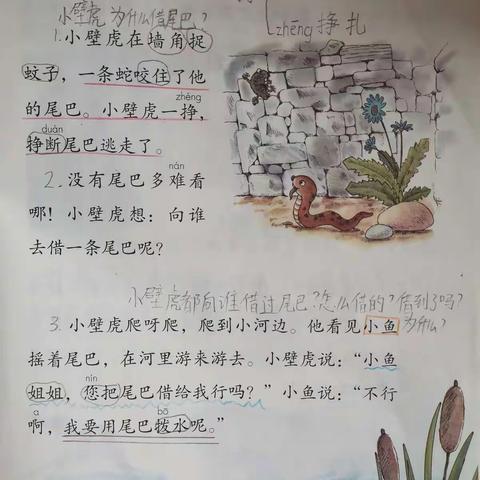 小壁虎为什么借尾巴？
[zhēng 挣扎
1.小壁虎在墙角捉
蚊子，一条蛇咬住了他
zhèng
的尾巴。小壁虎一挣，
duàn
挣断尾巴逃走了。
nán
2.没有尾巴多难看
哪！小壁虎想：向谁
去借一条尾巴呢？
小壁虎都向谁借过尾巴？怎么借的？借到了吗？
为什么？
3.小壁虎爬呀爬，爬到小河边。他看见小鱼
摇着尾巴，在河里游来游去。小壁虎说：“小鱼
nín
姐姐，您把尾巴借给我行吗？”小鱼说：“不行
a bō
啊，我要用尾巴拨水呢。”